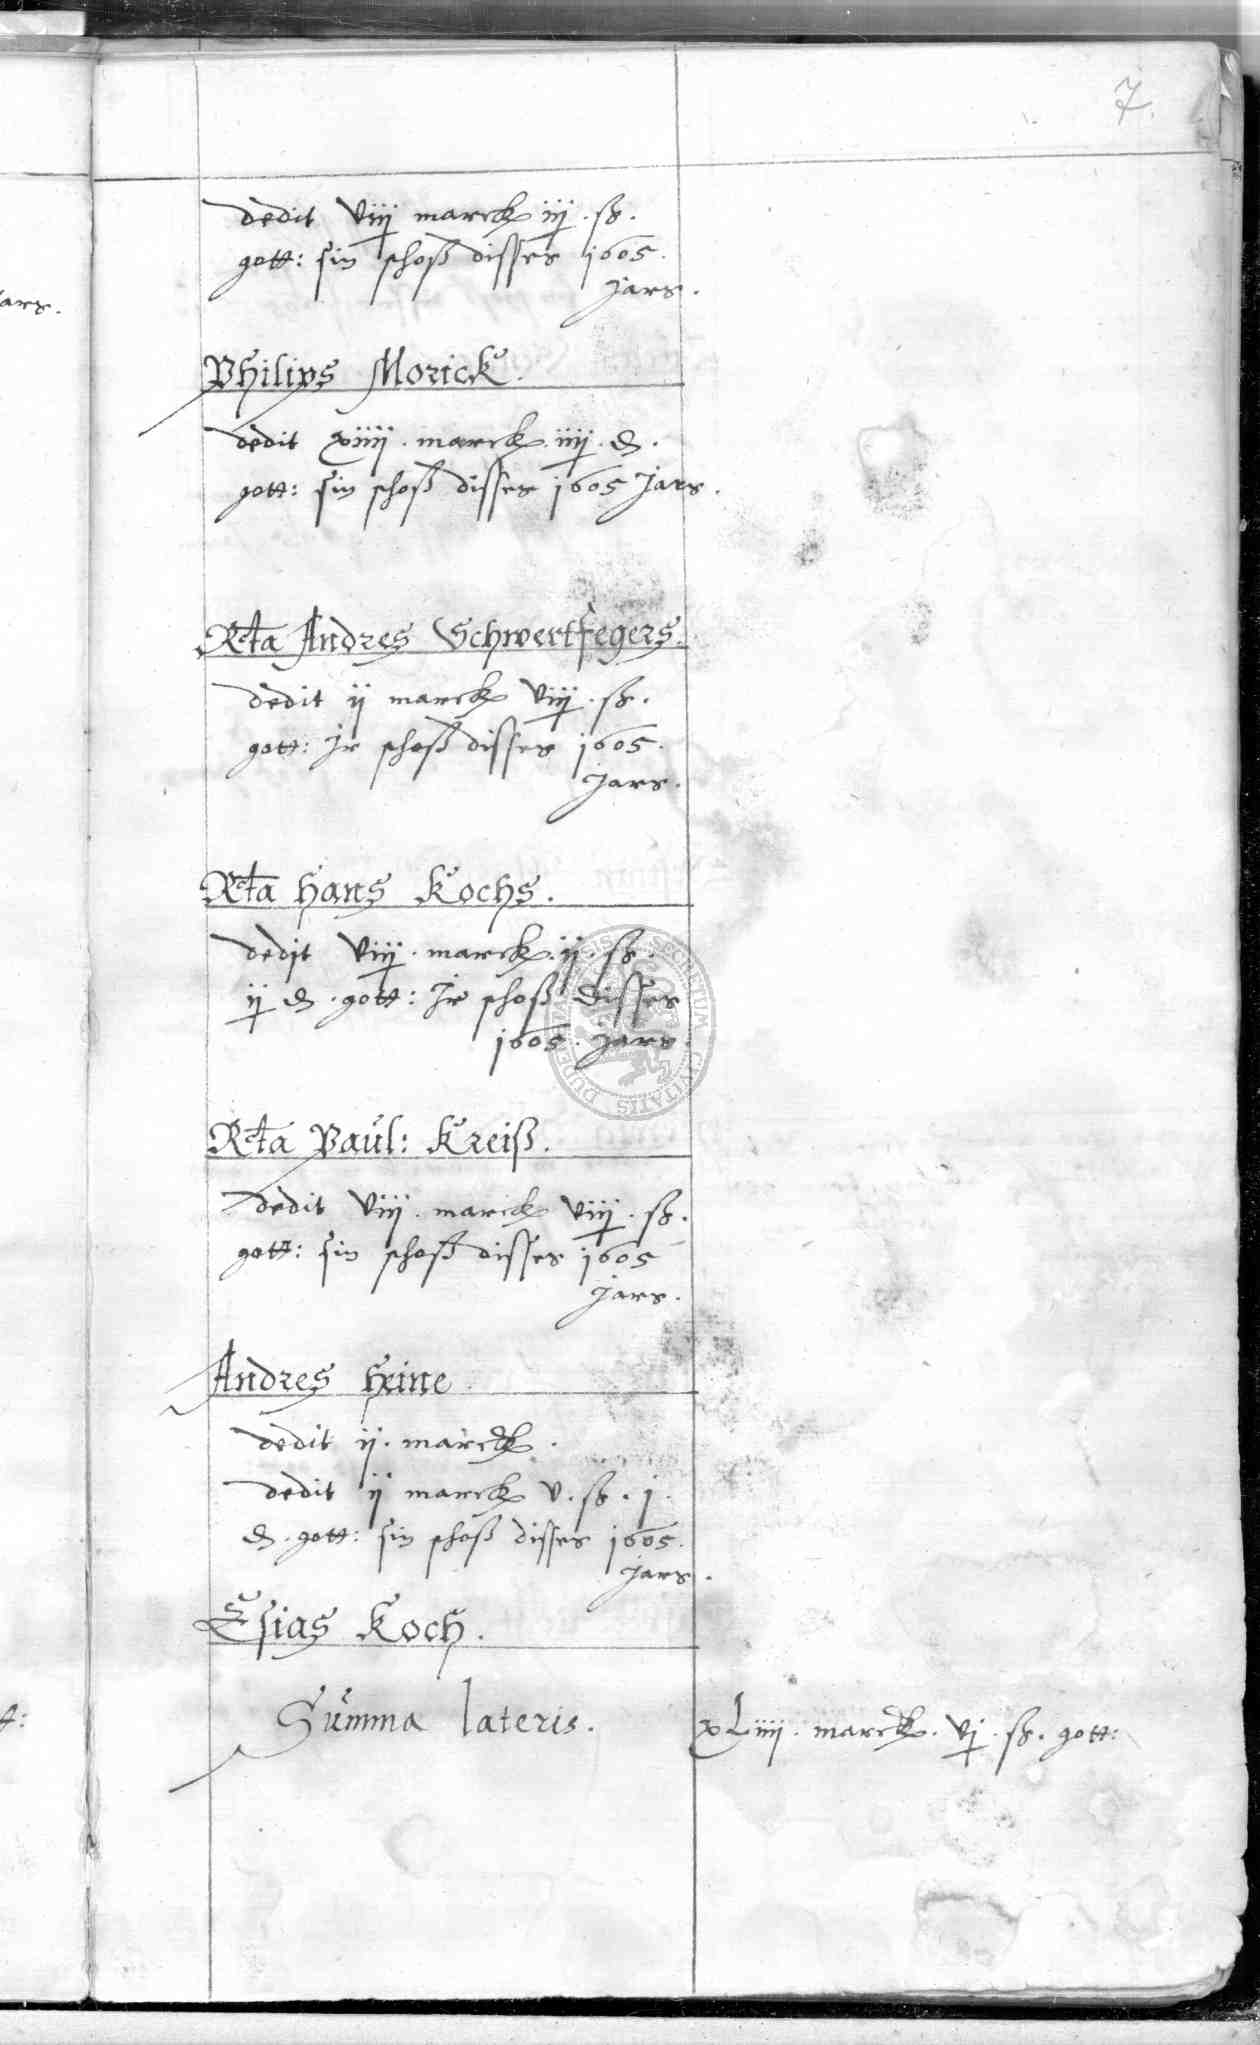 7.
dedit viij marck iij . ß .
gott: sin schoß disses 1605 .
Jars .
Philips Morick .
dedit xiiij . marck . iiij . ₰ .
gott: sin schoß disses 1605 Jars .
Rcta Andres Schwertfegers .
dedit ij marck viij . ß .
gott: Jr schoß disses 1605 .
Jars .
Rcta Hans Kochs .
dedit viij . marck . ij . ß .
ij ₰ . gott: Jr schoß disses
1605 . Jars .
Rcta Paul: Kreiß .
dedit viij . marck viij . ß .
gott: sin schoß disses 1605
Jars .
Andres Heine .
dedit ij . marck .
dedit ij marck v . ß . j .
₰ . gott: sin schoß disses 1605 .
Jars .
Esias Koch .
Summa lateris . xLiiij . marck . vj . ß . gott:
ars .